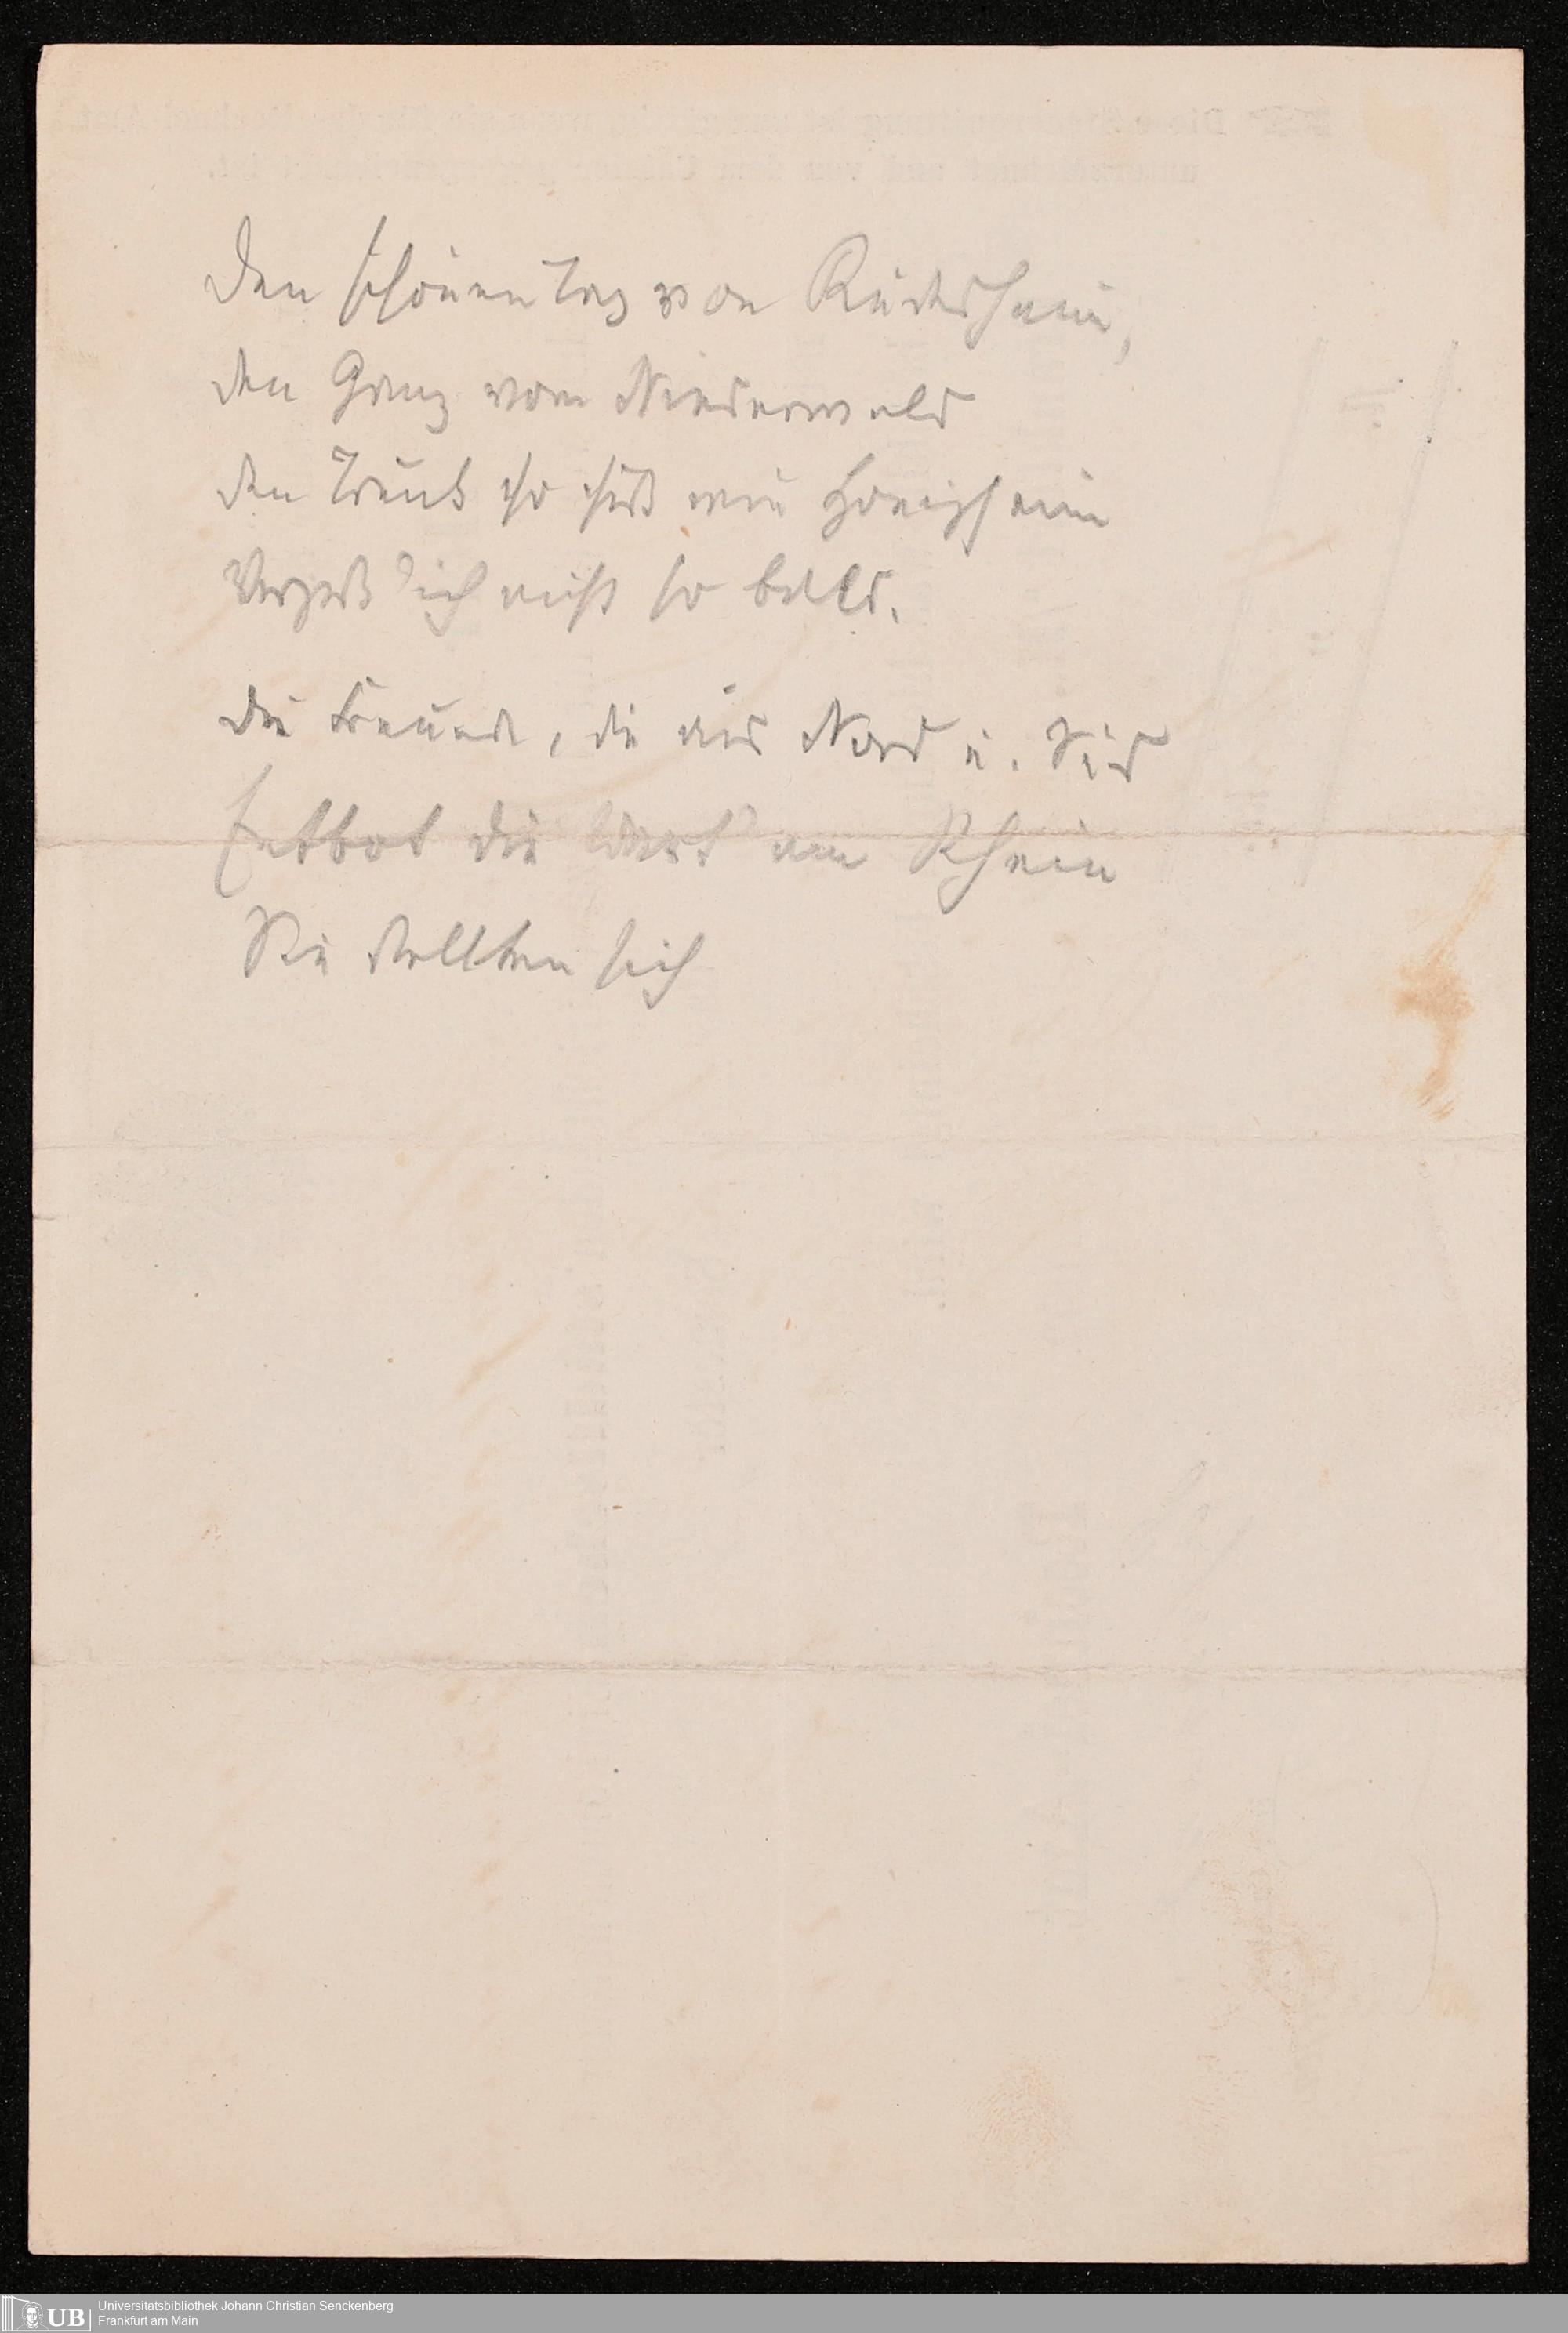 Den schönen Tag von Rüdesheim,
den Gang vom Niederwald
den Trunk so süß wie Honigseim
Vergeß ich nicht so bald.
Die Freunde, die aus Nord u. Süd
Entbot die am Rhein
Sie stellten sich
UB
Universitätsbibliothek Johann Christian Senckenberg
Frankfurt am Main